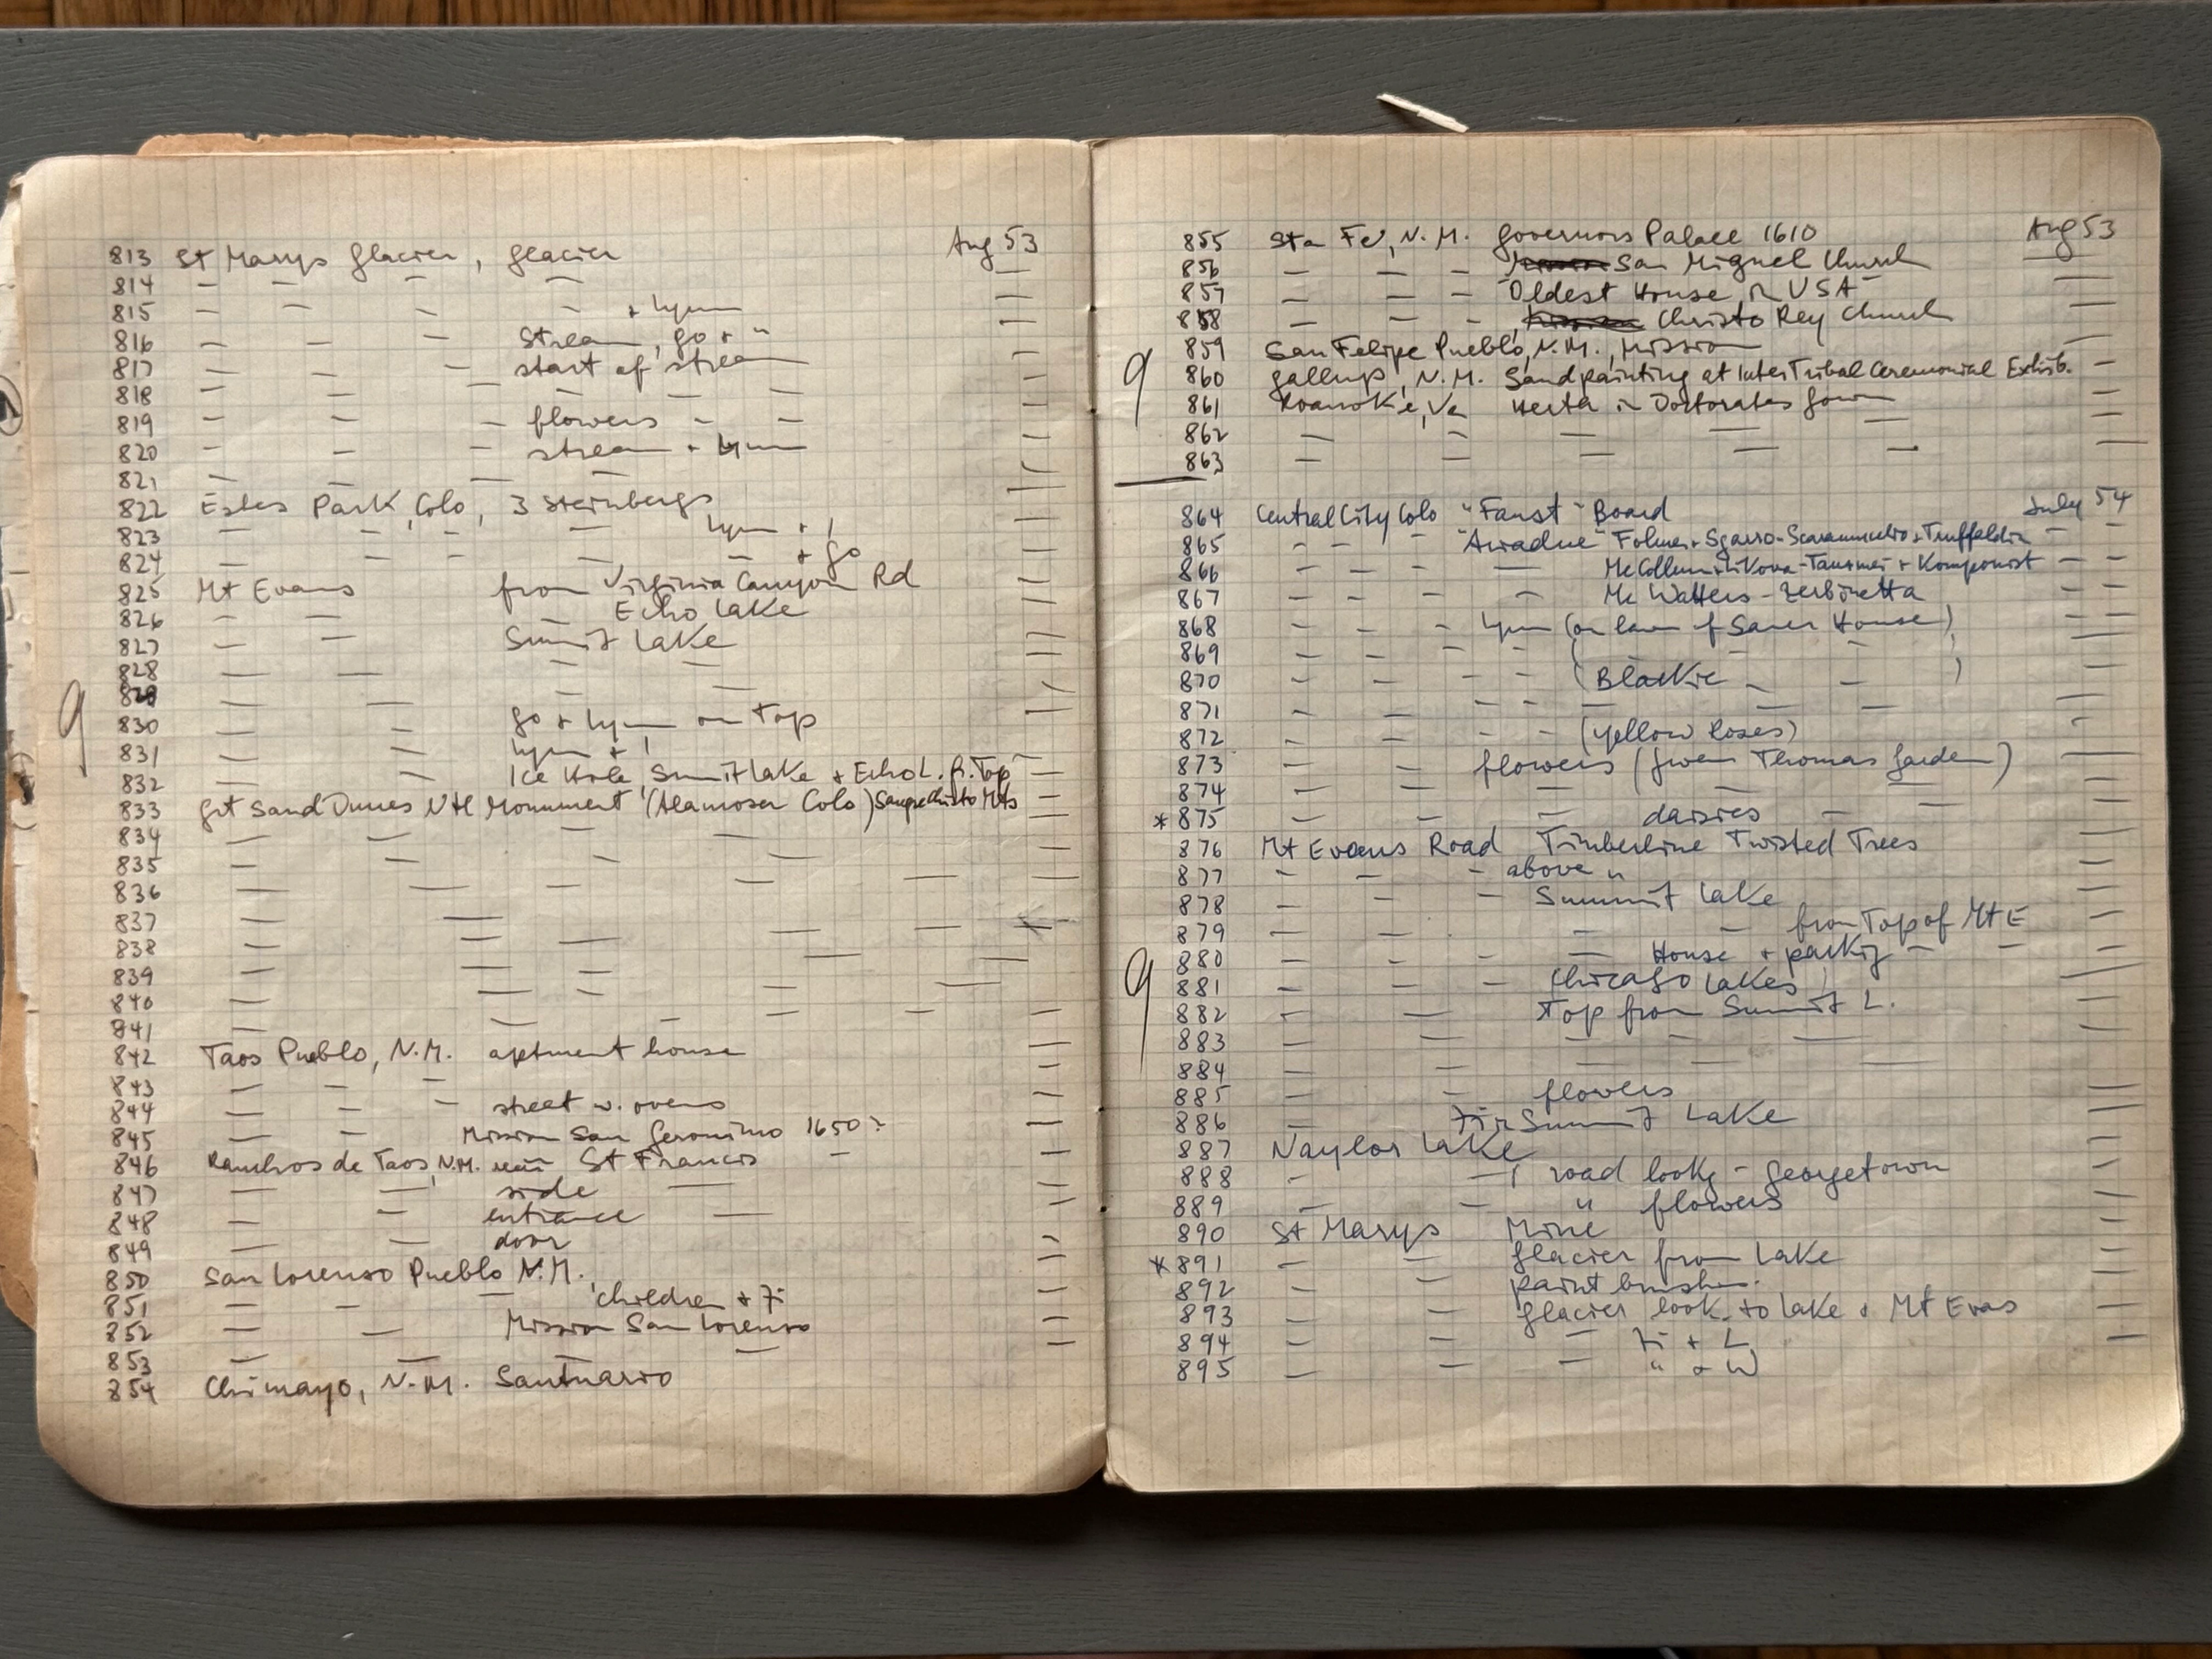 Aug 53
813 St Marys Glacier, glacier
814 — — — —
815 — — — — + Lynn
816 — — — Stream, Go + "
817 — — — start of stream
818 — — — — — —
819 — — — flowers — —
820 — — — stream + Lynn
821 — — — —
822 Estes Park, Colo, 3 Steinbergs
823 — — — — Lynn + I
824 — — — — + Go
825 Mt Evans from Virginia Canyon Rd
826 — — — Echo Lake
827 — — Summit Lake
828 — — — —
829 — — — —
9
830 — — Go + Lynn on Top
831 — — Lynn + I
832 — — Ice Hole, Summit Lake + Echo L. fr. Top
833 Grt Sand Dunes Ntl Monument (Alamosa Colo) Sangre Christo Mts
834 — — — —
835 — — — —
836 — — — — —
837 — — — — —
838 — — — — —
839 — — — — —
840 — — — — —
841 — — — — —
842 Taos Pueblo, N.M. aptment house
843 — — —
844 — — — street w. ovens
845 — — Mission San Geronimo 1650?
846 Ranchos de Taos, N.M. St Francis —
847 — — side —
848 — — entrance —
849 — — door
850 San Lorenso Pueblo N.M.
851 — — — children + Fi
852 — — Mission San Lorenso
853 — — — —
854 Chimayo, N.M. Santuario
855 Sta Fe, N.M. Governors Palace 1610 Aug 53
856 — — — San Miguel Church
857 — — — Oldest House in USA
858 — — — Christo Rey Church
859 San Felipe Pueblo, N.M., Mission
9
860 Gallup, N.M. Sandpainting at InterTribal Ceremonial Exhib.
861 Roanoke, Va Herta in Doctorates Gown
862 — — — — —
863 — — — — —
864 Central City Colo "Faust" Board July 54
865 — — — "Ariadne" Sgarro-Scaramuccio + Truffaldin
866 — — — — Komponist
867 — — — — Mc Watters - Zerbinetta
868 — — — Lynn (on lawn of Sauer House)
869 — — — — ( — — )
870 — — — — (Blackie — — )
871 — — — — — — —
872 — — — — (yellow roses)
873 — — flowers (Gwen Thomas Garden)
874 — — — — —
* 875 — — — daisies — —
876 Mt Evans Road Timberline Twisted Trees
877 — — — above "
878 — — — Summit Lake
879 — — — — — from Top of Mt E
880 — — — — House + parkg — —
9
881 — — — Chicago Lakes
882 — — Top from Summit L.
883 — — — — —
884 — — — — —
885 — — flowers
886 — Fi Summit Lake
887 Naylor Lake
888 — — road lookg – Georgetown
889 — — " flowers
890 St Marys Mine
* 891 — — Glacier from Lake
892 — — paintbrush.
893 — — glacier look. to Lake + Mt Evans
894 — — — Fi + L
895 — — — " + W